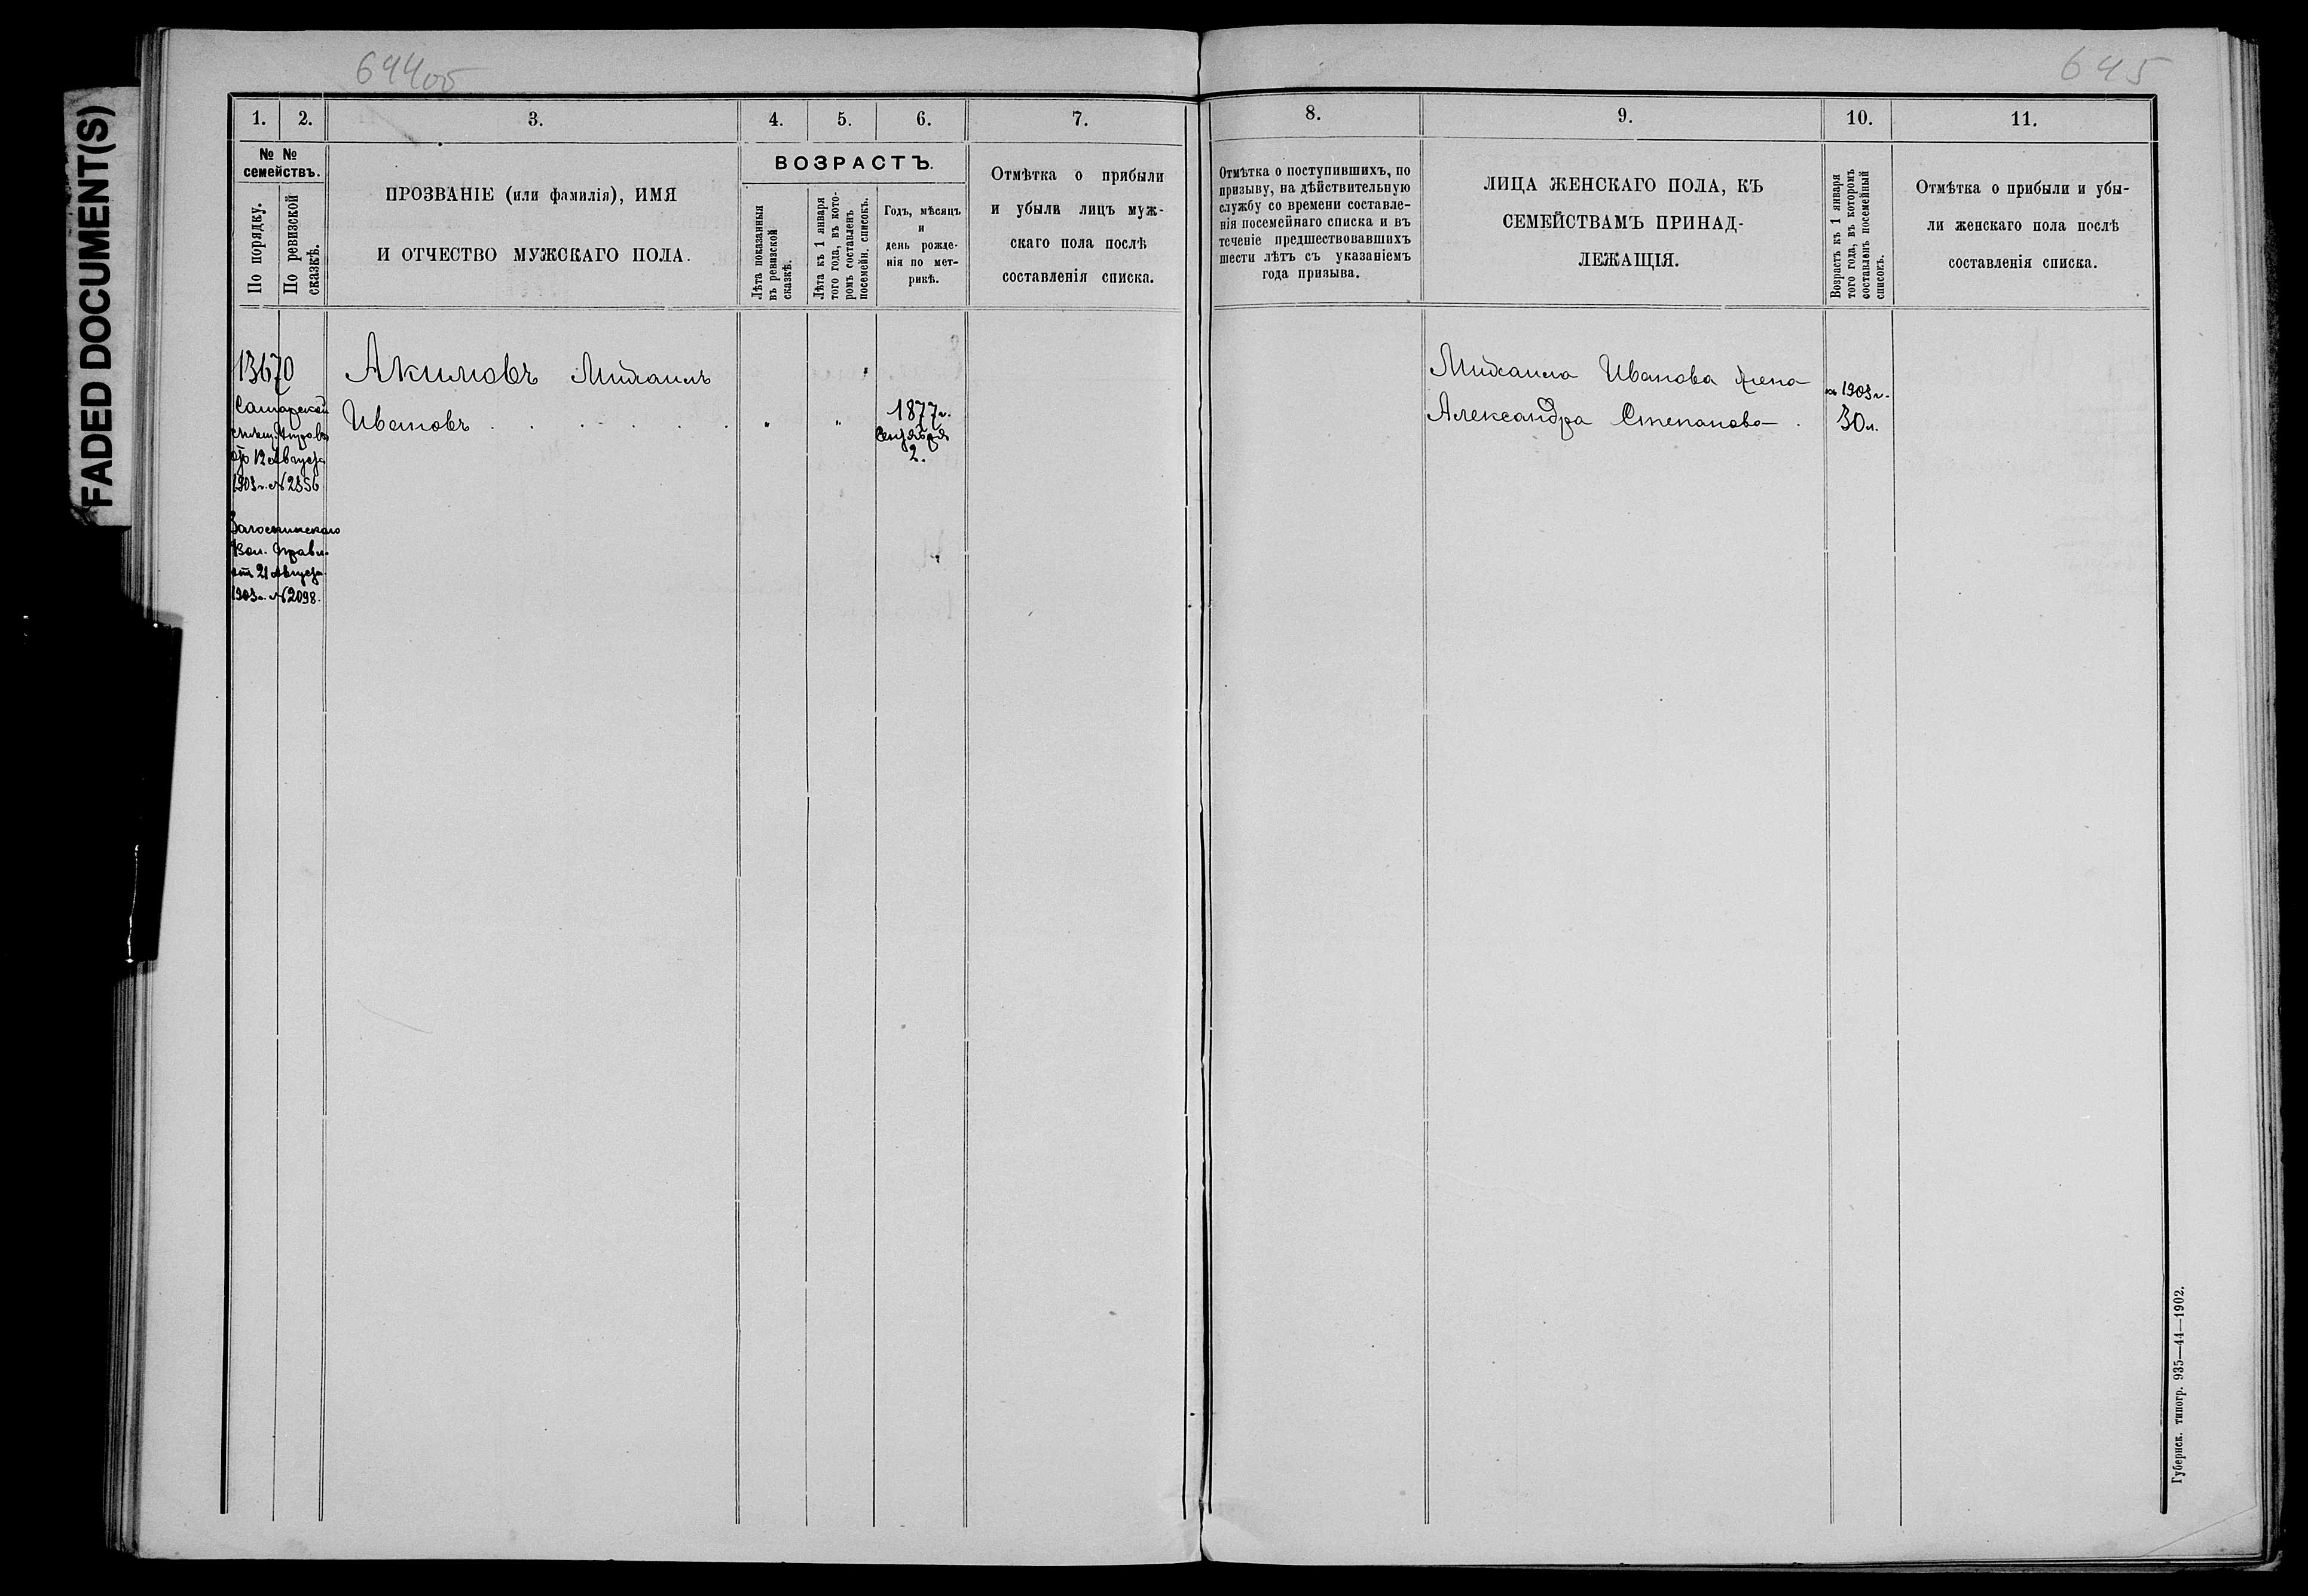 FADED DOCUMENT(S)
644об
645
1. 2. 3. 4. 5. 6. 7.
№ №
семействъ.
По порядку.
По ревизской
сказкѣ.
ПРОЗВАНІЕ (или фамилія), ИМЯ
И ОТЧЕСТВО МУЖСКАГО ПОЛА.
ВОЗРАСТЪ.
Лѣта показанныя
въ ревизской
сказкѣ.
Лѣта къ 1 января
того года, въ кото-
ромъ составленъ
посемейн. списокъ.
Годъ, мѣсяцъ
и
день рожде-
нія по мет-
рикѣ.
Отмѣтка о прибыли
и убыли лицъ муж-
скаго пола послѣ
составленія списка.
13670
Самарской
от 12 Августа
1903 г. № 2356
Вол. Правл.
от 21 Августа
1903 г. № 2098.
Акимовъ Михаилъ
Ивановъ . . . . . .
" "
1877 г.
Сентября
2.
8. 9. 10. 11.
Отмѣтка о поступившихъ, по
призыву, на дѣйствительную
службу со времени составле-
нія посемейнаго списка и въ
теченіе предшествовавшихъ
шести лѣтъ съ указаніемъ
года призыва.
ЛИЦА ЖЕНСКАГО ПОЛА, КЪ
СЕМЕЙСТВАМЪ ПРИНАД-
ЛЕЖАЩІЯ.
Возрастъ къ 1 января
того года, въ которомъ
составленъ посемейный
списокъ.
Отмѣтка о прибыли и убы-
ли женскаго пола послѣ
составленія списка.
Михаила Иванова жена
Александра Степанова .
къ 1903 г.
30 л.
Губернск. типогр. 935—44—1902.